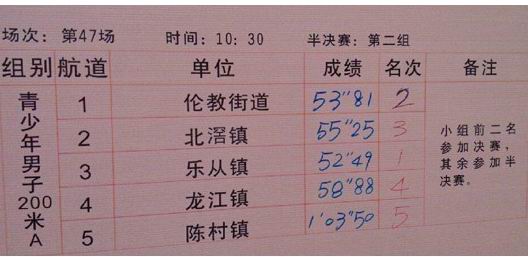 场次：第47场 时间：10：30 半决赛：第二组
组别 航道 单位 成绩 名次 备注
青少年男子200米A
1 伦教街道 53"81 2
2 北滘镇 55"25 3
3 乐从镇 52"49 1
4 龙江镇 58"88 4
5 陈村镇 1'03"50 5
小组前二名
参加决赛，
其余参加半
决赛。